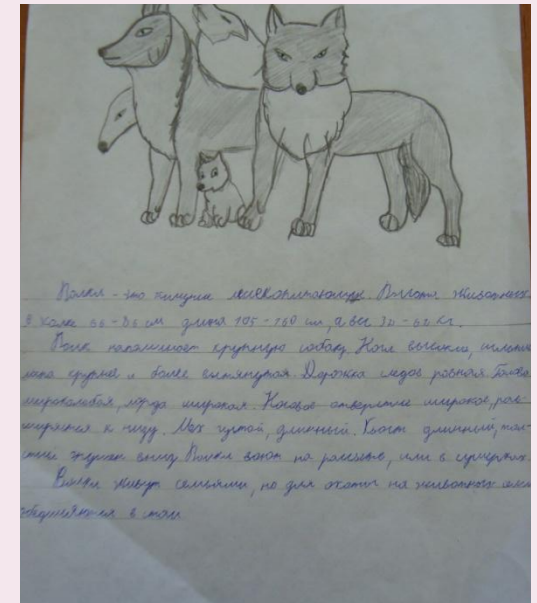 Волки - это хищные млекопитающие. Высота животных
в холке 66-86 см длина 105-160 см, а вес 30-60 кг.
Волк напоминает крупную собаку Ноги высокие,
лапа крупная и более вытянутая Дорожка следов ровная Голова
широколобая, морда широкая Носовое отверстие широкое, рас-
ширяется к низу. Мех густой, длинный. Хвост длинный, тол-
стый внизу Волки воют на рассвете, или в сумерках.
Волки живут семьями, но для охоты на животных они
объединяются в стаи